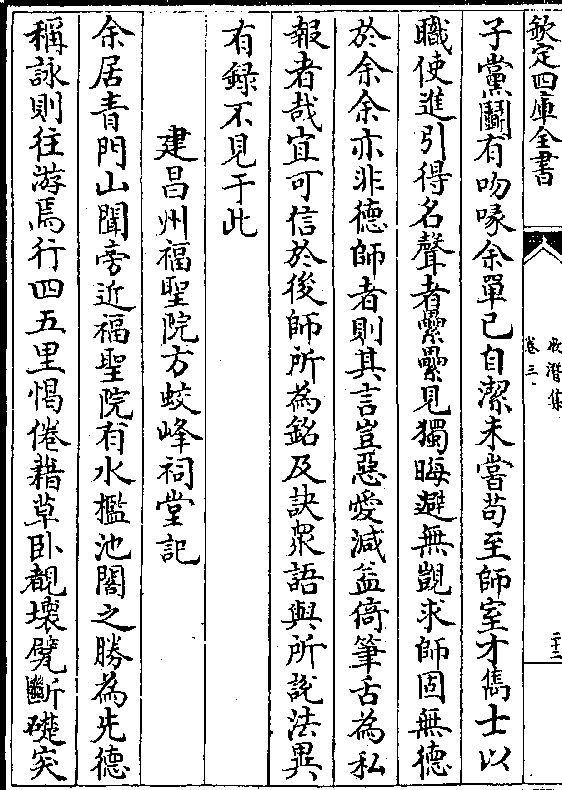 欽定四庫全書
牧潛集
卷三
二十二
子黨鬭有吻喙余單已自潔未嘗苟至師室才雋士以
職使進引得名聲者纍纍見獨晦避無覬求師固無德
於余余亦非德師者則其言豈惡愛減益倚筆舌為私
報者哉宜可信於後師所為銘及訣衆語與所說法異
有録不見于此
建昌州福聖院方蛟峰祠堂記
余居青門山聞旁近福聖院有水檻池閣之勝為先德
稱詠則往游焉行四五里愒倦藉草卧覩壞甓斷礎突